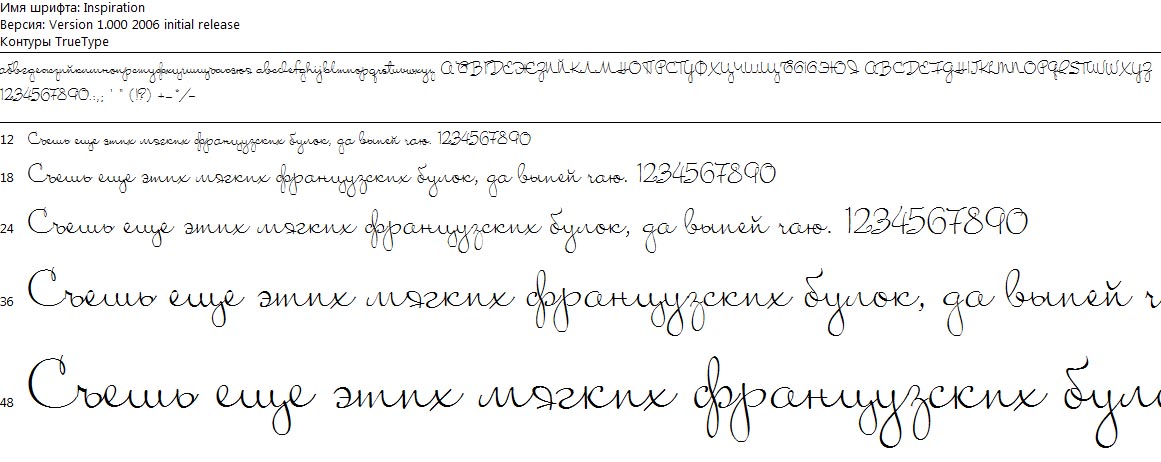 Имя шрифта: Inspiration
Версия: Version 1.000 2006 initial release
Контуры TrueType
абвгдежзийклмнопрстуфхцчшщъыьэюя abcdefghijklmnopqrstuvwxyz АБВГДЕЖЗИЙКЛМНОПРСТУФХЦЧШЩЪЫЬЭЮЯ ABCDEFGHIJKLMNOPQRSTUVWXYZ
1234567890.:,; ' " (!?) +-*/=
12 Съешь еще этих мягких французских булок, да выпей чаю. 1234567890
18 Съешь еще этих мягких французских булок, да выпей чаю. 1234567890
24 Съешь еще этих мягких французских булок, да выпей чаю. 1234567890
36 Съешь еще этих мягких французских булок, да выпей ч
48 Съешь еще этих мягких французских було